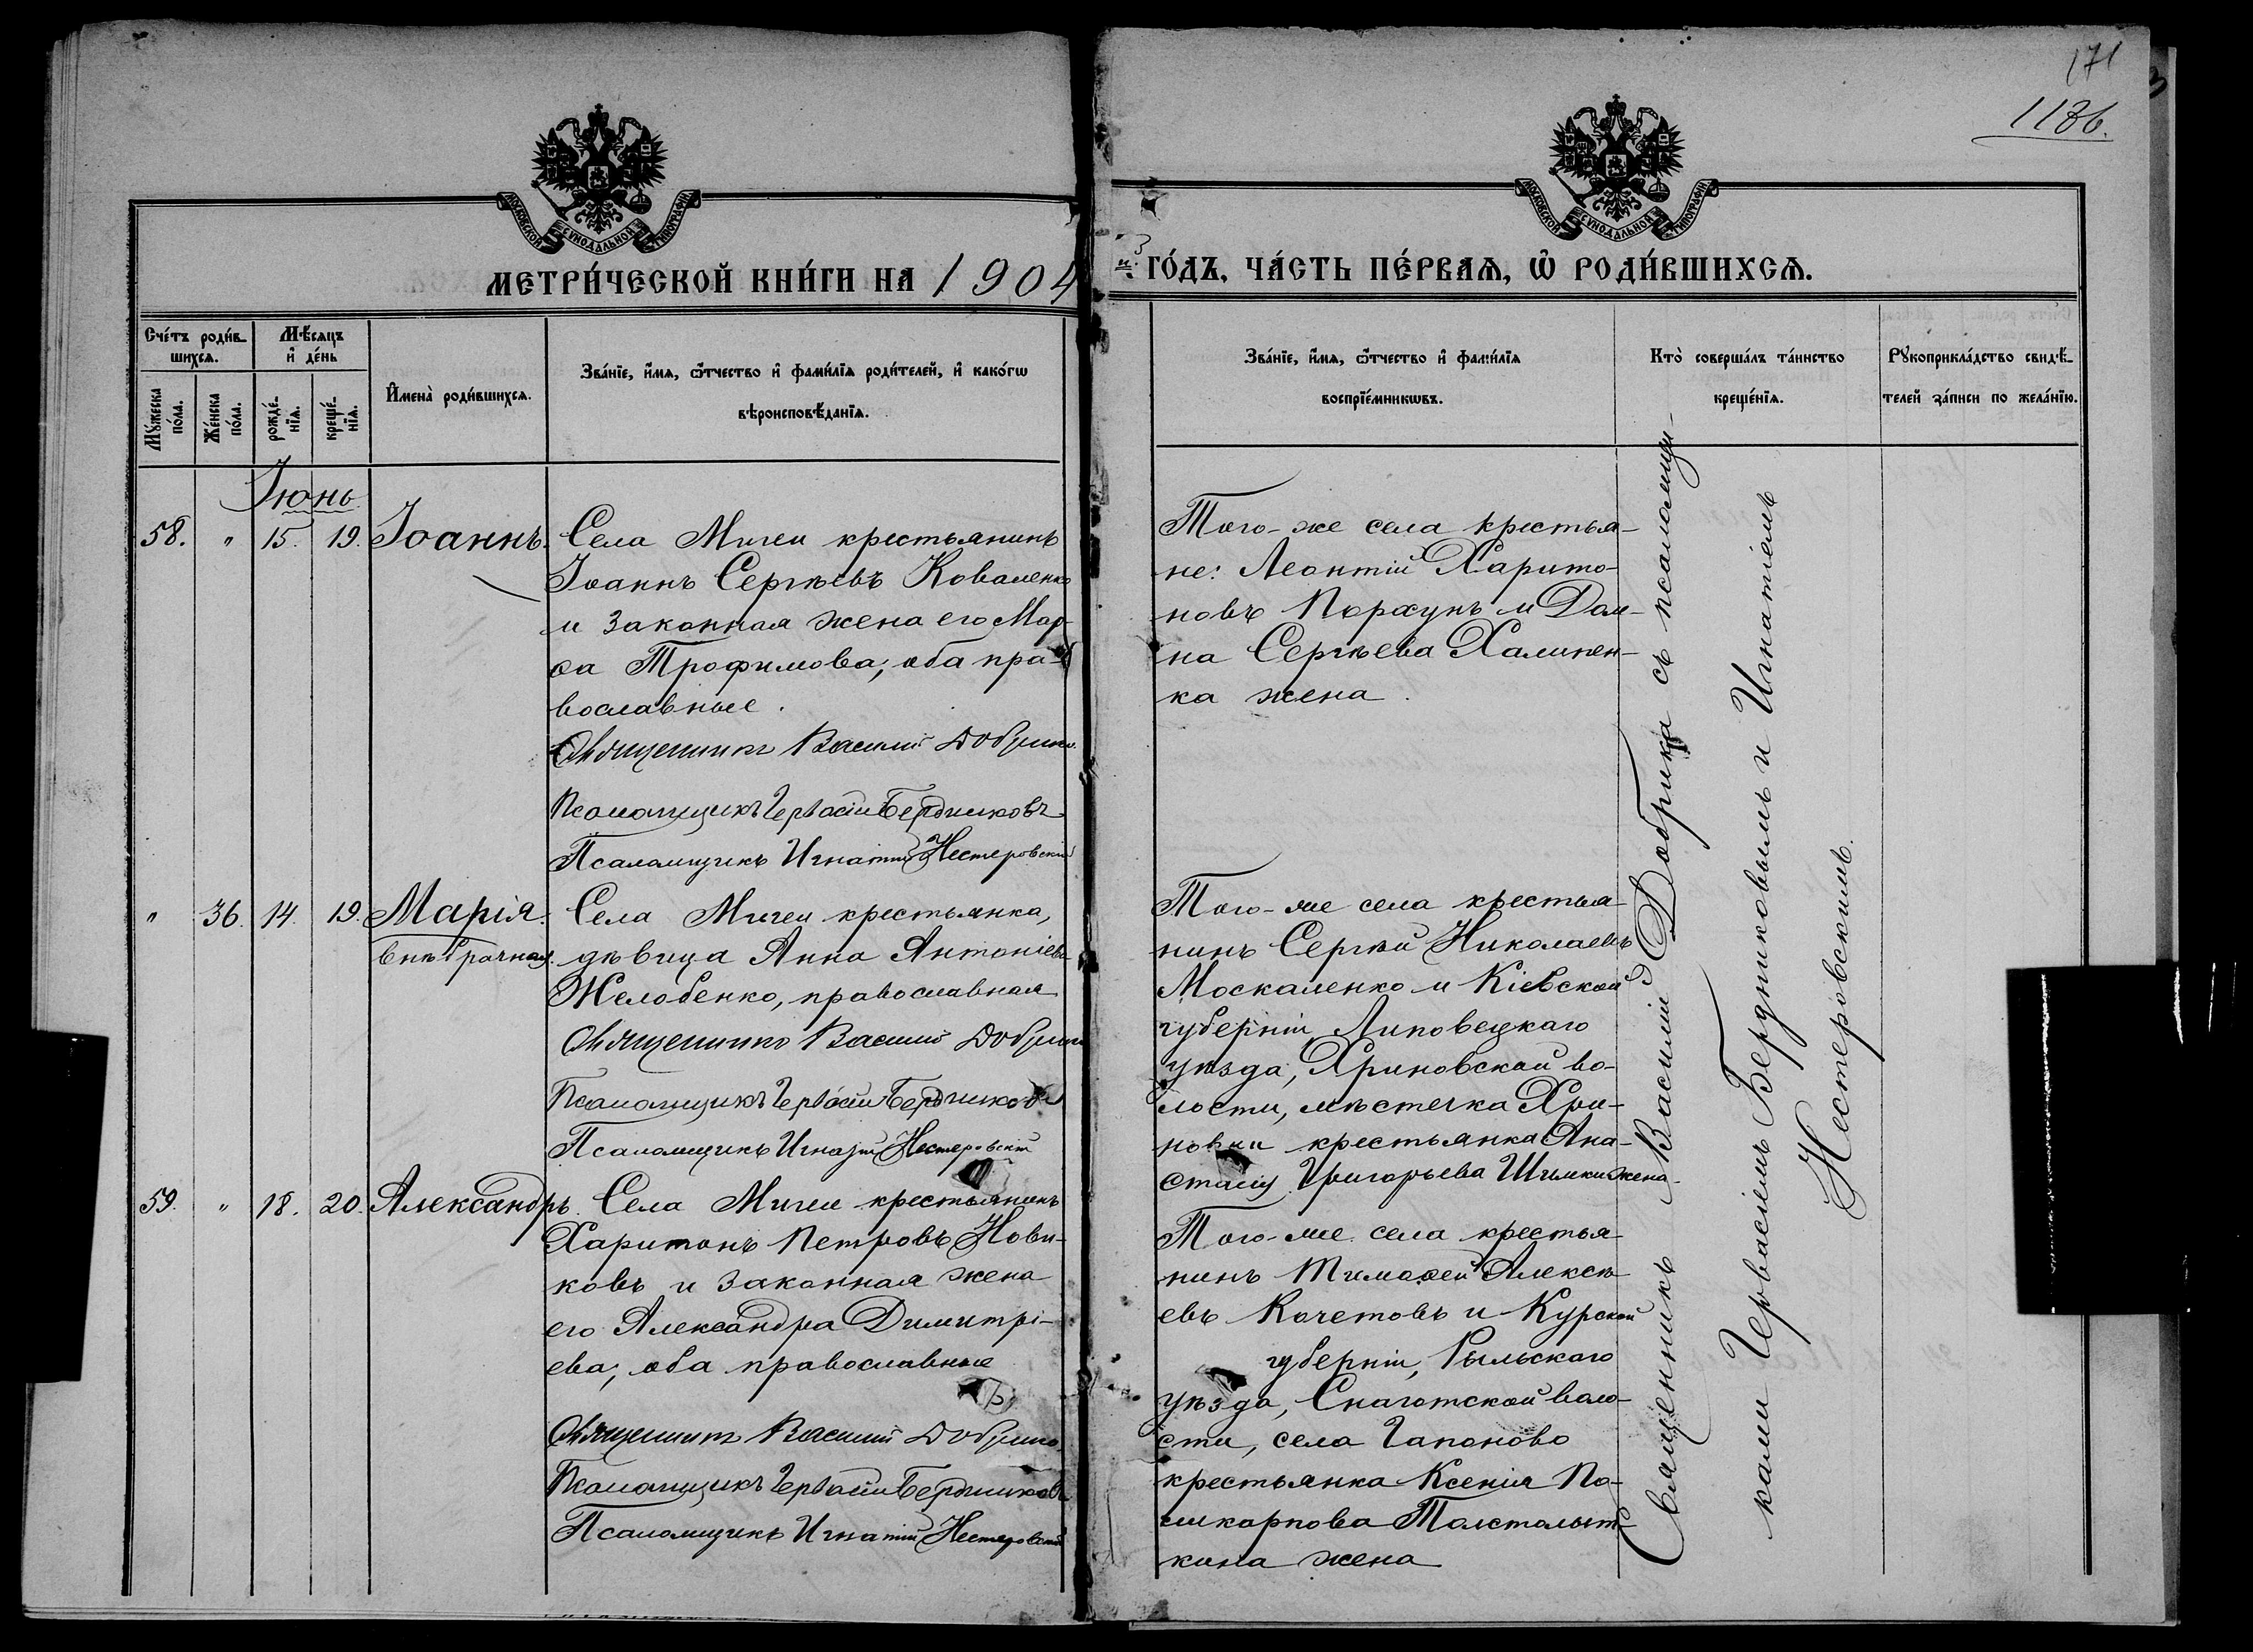 171
1136.
МОСКОВСКОЙ СѴНОДАЛЬНОЙ ТИПОГРАФІИ
МОСКОВСКОЙ СѴНОДАЛЬНОЙ ТИПОГРАФІИ
МЕТРИ́ЧЕСКОЙ КНИ́ГИ НА 1904
ГО́ДЪ, ЧА́СТЬ ПЕ́РВАѦ, Ѽ РОДИ́ВШИХСѦ.
Сче́тъ роди́в-
шихсѧ.
Мꙋ́жеска
по́ла.
Же́нска
по́ла.
Мѣ́сѧцъ
и҆ де́нь
рожде́-
нїѧ.
креще́-
нїѧ.
И҆мена̀ роди́вшихсѧ.
Зва́нїе, и҆́мѧ, ѻ҆́тчество и҆ фами́лїѧ роди́телей, и҆ како́гѡ
вѣроисповѣ́данїѧ.
Зва́нїе, и҆́мѧ, ѻ҆́тчество и҆ фами́лїѧ
воспрїе́мникѡвъ.
Кто̀ соверша́лъ та́инство
креще́нїѧ.
Рꙋкоприкла́дство свидѣ́-
телей за́писи по жела́нїю.
Іюнь
58. " 15. 19. Іоаннъ.
Села Мигеи крестьянинъ
Іоаннъ Сергѣевъ Коваленко
и законная жена его Мар-
ѳа Трофимова, оба пра-
вославные.
Священникъ Василій Добрика
Псаломщикъ Гервасій Бердниковъ
Псаломщикъ Игнатій Нестеровскій
Того-же села крестья-
не: Леонтій Харито-
новъ Порхунъ и Дом-
на Сергѣева Халинен-
ка жена.
" 36. 14. 19. Марія.
внѣбрачная.
Села Мигеи крестьянка,
дѣвица Анна Антоніева
Желобенко, православная
Священникъ Василій Добрика
Псаломщикъ Гервасій Бердниковъ
Псаломщикъ Игнатій Нестеровскій
Того-же села крестья-
нинъ Сергѣй Николаевъ
Москаленко и Кіевской
губерніи Липовецкаго
уѣзда, Хриновской во-
лости, мѣстечка Хри-
новки крестьянка Ана-
стасія Григорьева Шимки жена
59. " 18. 20. Александръ.
Села Мигеи крестьянинъ
Харитонъ Петровъ Нови-
ковъ и законная жена
его Александра Димитрі-
ева, оба православные
Священникъ Василій Добрика
Псаломщикъ Гервасій Бердниковъ
Псаломщикъ Игнатій Нестеровскій
Того-же села крестья-
нинъ Тимоѳей Алексѣ-
евъ Кочетовъ и Курской
губерніи, Рыльскаго
уѣзда, Снаготской воло-
сти, села Гапоново
крестьянка Ксенія По-
ликарпова Толстолыт-
кина жена
Священникъ Василій Добрика съ псаломщи-
ками Гервасіемъ Бердниковымъ и Игнатіемъ
Нестеровскимъ.